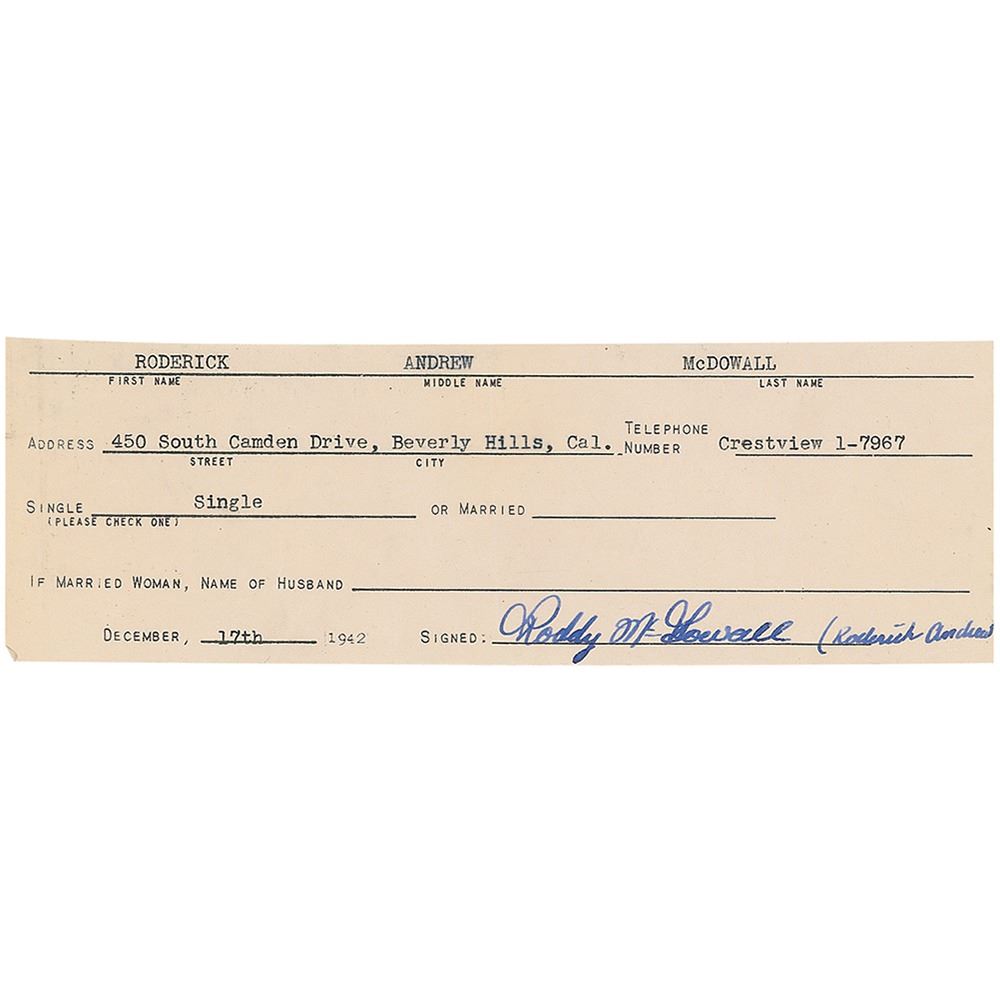 RODERICK ANDREW McDOWALL
FIRST NAME MIDDLE NAME LAST NAME
TELEPHONE
ADDRESS 450 South Camden Drive, Beverly Hills, Cal. NUMBER Crestview 1-7967
STREET CITY
SINGLE Single OR MARRIED
(PLEASE CHECK ONE)
IF MARRIED WOMAN, NAME OF HUSBAND
DECEMBER, 17th 1942 SIGNED: Roddy McDowall (Roderick Andrew